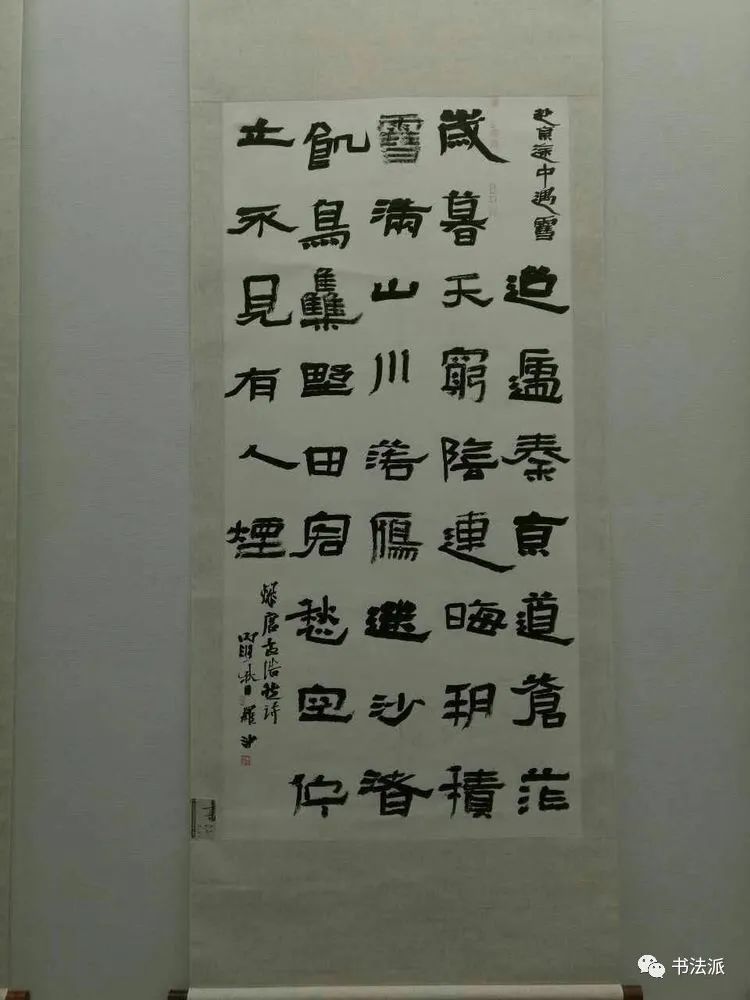 赴京途中遇雪
迢遞秦京道蒼茫
歲暮天窮陰連晦朔積
雪滿山川落鴈迷沙渚
飢鳥雧墅田客愁空佇
立不見有人煙
錄唐孟浩然詩
秋日羅
书法派